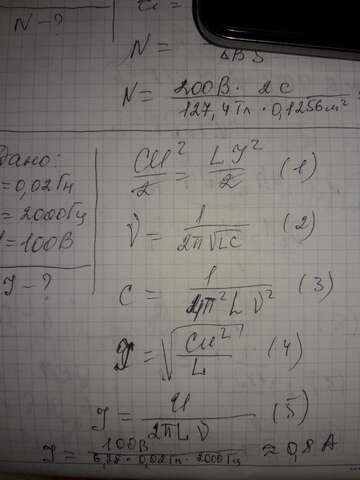 N - ?
N = ΔBS
N = 200В · 2с / 127,4Тл · 0,1256м²
Дано:
= 0,02Гн
= 2000Гц
= 100В
J - ?
CU²/2 = LJ²/2 (1)
ν = 1/2π√LC (2)
C = 1/4π²Lν² (3)
J = √CU²/L (4)
J = U/2πLν (5)
J = 100В/6,28 · 0,02Гн · 2000Гц ≈ 0,8 А